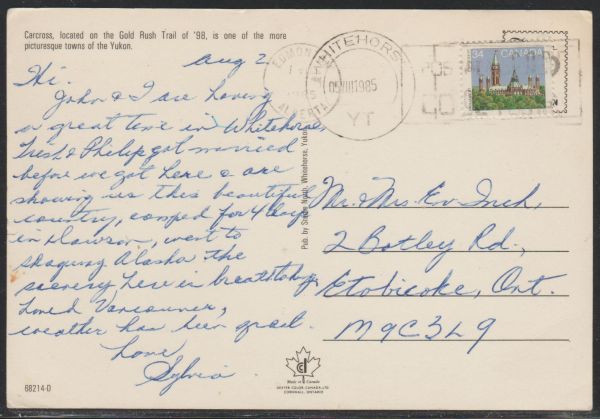 Carcross, located on the Gold Rush Trail of '98, is one of the more
picturesque towns of the Yukon.
Aug 2
Hi.
John & I are having
a great time in Whitehorse,
Trish & Philip got married
before we got here & are
showing us this beautiful
country, camped for 4 days
in Dawson, went to
Skagway Alaska the
scenery here is breathtaking
Loved Vancouver,
weather has been great.
Love
Sylvia
68214-D
EDMONTON
ALBERTA
WHITEHORSE
05 VIII 1985
YT
34 CANADA
Mr. & Mrs. Ev. Inch,
2 Botley Rd.,
Etobicoke, Ont.
M9C3L9
Whitehorse, Yukon
Made in Canada
DEXTER COLOR CANADA LTD
CORNWALL, ONTARIO